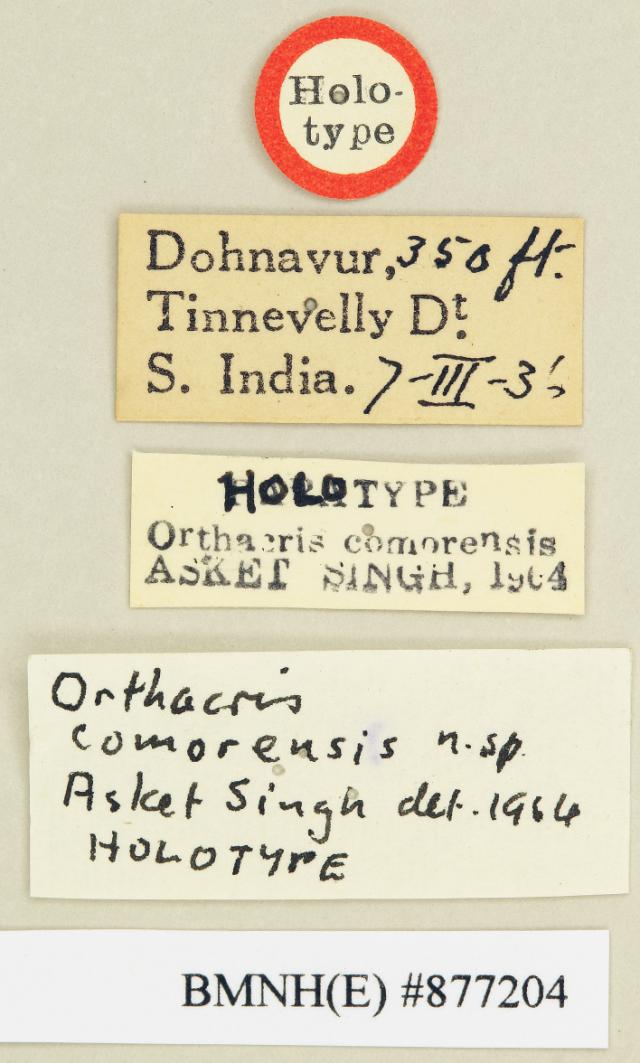 Holo-
type
Dohnavur, 350 ft.
Tinnevelly Dt.
S. India. 7-III-36
HOLOTYPE
Orthacris comorensis
ASKET SINGH, 1964
Orthacris
comorensis n.sp.
Asket Singh det. 1964
HOLOTYPE
BMNH(E) #877204